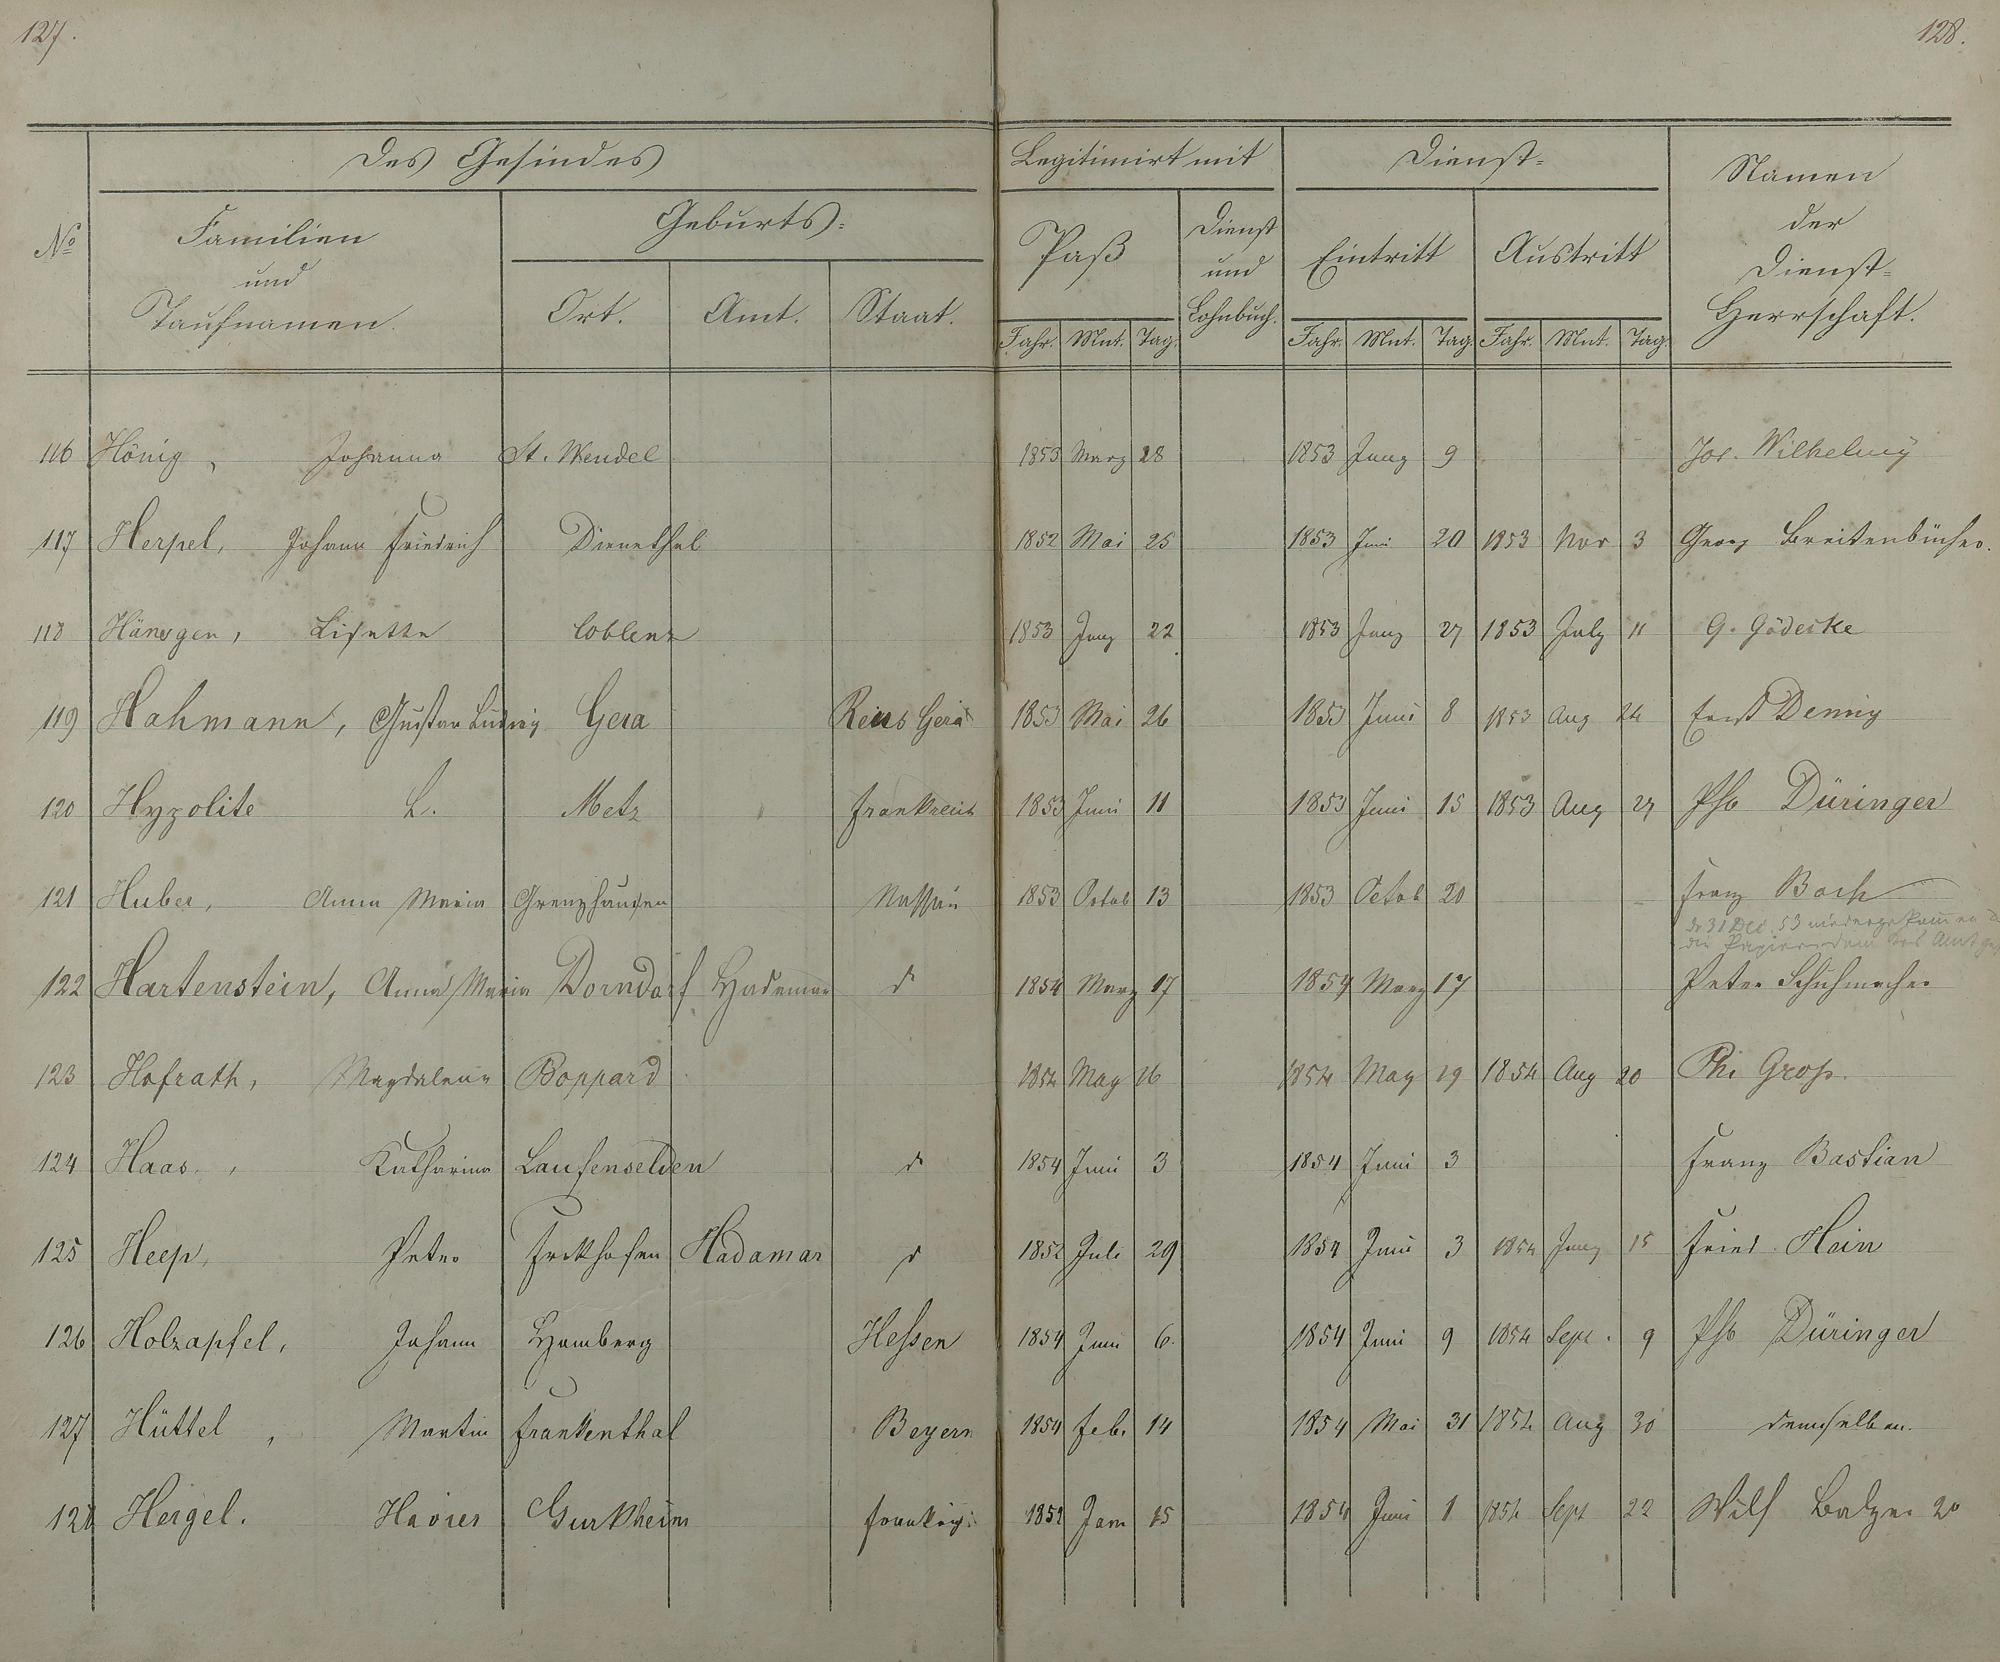 127.
128.
Des Gesindes
Legitimirt mit
Dienst-
Namen
der
Dienst-
Herrschaft.
No
Familien
und
Taufnamen.
Geburts-
Ort. Amt. Staat.
Paß
Dienst
und
Lohnbuch.
Eintritt
Austritt
Jahr. Mnt. Tag.
Jahr. Mnt. Tag. Jahr. Mnt. Tag.
116 Hönig, Johanna St. Wendel 1853 Marz 28 1853 Juny 9 Jos. Wilhelmy
117 Herpel, Johann Friedrich Dienethal 1852 Mai 25 1853 Juni 20 1853 Nov 3 Georg Breitenbücher.
118 Hänsgen, Lisette Coblenz 1853 Juny 22 1853 Juny 27 1853 July 11 G. Gödecke
119 Hahmann, Gustav Ludwig Gera Reus Gera 1853 Mai 26 1853 Juni 8 1853 Aug 24 Ernst Denig
120 Hypolite L. Metz Frankreich 1853 Juni 11 1853 Juni 15 1853 Aug 27 Phb Düringer
121 Huber, Anna Maria Grenzhausen Nassau 1853 Octob 13 1853 Octob 20 Franz Bach
31 Dec. 53
122 Hartenstein, Anna Maria Dorndorf Hadamar d 1854 Marz 17 1854 Marz 17 Peter Schuhmacher
123 Hofrath, Magdalena Boppard 1854 May 16 1854 May 19 1854 Aug 20 Phi Groß.
124 Haas, Katharina Laufenselden d 1854 Juni 3 1854 Juni 3 Franz Bastian
125 Heep, Peter Frickhofen Hadamar d 1852 Juli 29 1854 Juni 3 1854 Juny 15 Fried. Hain
126 Holzapfel, Johann Homberg Hessen 1854 Juni 6. 1854 Juni 9 1854 Sept. 9 Phb Düringer
127 Hüttel, Martin Frankenthal Beyern 1854 Febr 14 1854 Mai 31 1854 Aug 30 demselben.
128 Heigel. Havier Gurkheim 1852 Jan 15 1854 Juni 1 1854 Sept 22 Wilh Balzer